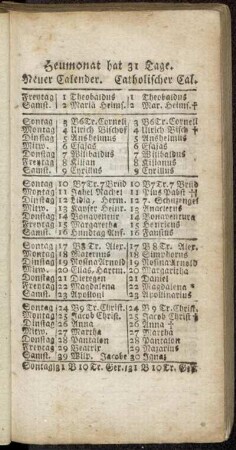 Heumonat hat 31 Tage.
Neuer Calender. Catholischer Cal.
Freytag 1 Theobaldus 1 Theobaldus
Samst. 2 Maria Heims. 2 Mar. Heims. †
Sontag 3 B6Tr. Cornel 3 B6Tr. Cornell
Montag 4 Ulrich Bischof 4 Ulrich Bisch †
Dinstag 5 Anshelmus 5 Anshelmus
Mitw. 6 Esajas 6 Esajas
Donst. 7 Wilibaldus 7 Wilibaldus
Freytag 8 Kilian 8 Kilianus
Samst. 9 Cyrillus 9 Cyrillus
Sontag 10 B7Tr. 7 Brüd 10 B7 Tr. 7 Brüd
Montag 11 Rahel 11 Pius Pabst
Dinstag 12 Lidia, Herm. 12 Schutzengel
Mitw. 13 Kayser Heinr. 13
Donst. 14 Bonaventur 14 Bonaventura
Freytag 15 Margaretha 15 Henricus
Samst. 16 Hundstag Anf. 16
Sontag 17 B8 Tr. Alex. 17 B 8 Tr. Alex.
Montag 18 Maternus 18
Dinstag 19 Rosina 19
Mitw. 20 Elias, Harm. 20 Margaritha
Donst. 21 21 Daniel
Freytag 22 Magdalena 22 Magdalena
Samst. 23 23 Apollinarius
Sontag 24 B9 Tr. Christ. 24 B 9 Tr. Christ.
Montag 25 Jacob Christ. 25 Jacob Christ †
Dinstag 26 Anna 26 Anna †
Mitw. 27 Martha 27 Martha
Donst. 28 Pantaleon 28 Pantaleon
Freytag 29 Beatrix 29 Nazarius
Samst. 30 Jacobe 30 Ignaz
Sontag 31 B 10 Tr. Ger. 31 B 10 Tr. Ger.